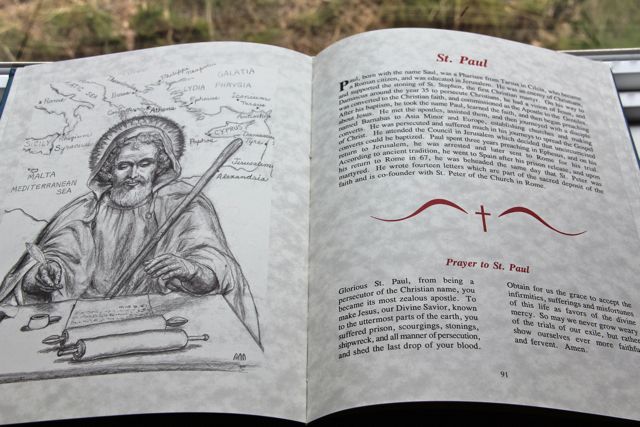 GALATIA
LYDIA PHRYGIA
Rome
Athens
Ephesus
SICILY
Rhegium
Syracuse
CYPRUS
Paphos
MALTA
MEDITERRANEAN
SEA
Jerusalem
Alexandria
St. Paul
Paul, born with the name Saul, was a Pharisee from Tarsus in Cilicia, who became
a Roman citizen, and was educated in Jerusalem. He was an enemy of Christians
and supported the stoning of St. Stephen, the first Christian martyr. On his way to
Damascus around the year 35 to persecute Christians, he had a vision of Christ,
was converted to the Christian faith, and commissioned as the Apostle of the Gentiles.
After his baptism, he took the name Paul, learned the faith, and then began to preach
about Jesus. He met the apostles, assisted them, and then journeyed with a disciple
named Barnabas to Asia Minor and Europe, founding churches and making
converts. He was persecuted and suffered much in his preaching of the Gospel
of Christ. He attended the Council in Jerusalem which decided that
converts could be baptized. Paul spent three years preaching in Ephesus, and on his
return to Jerusalem, he was arrested and later sent to Rome for his trial.
According to ancient tradition, he went to Spain after his prison release, and upon
his return to Rome in 67, he was beheaded the same day that St. Peter was
martyred. He wrote fourteen letters which are part of the sacred deposit of the
faith and is co-founder with St. Peter of the Church in Rome.
Prayer to St. Paul
Glorious St. Paul, from being a
persecutor of the Christian name, you
became its most zealous apostle. To
make Jesus, our Divine Savior, known
to the uttermost parts of the earth, you
suffered prison, scourgings, stonings,
shipwreck, and all manner of persecution,
and shed the last drop of your blood.
Obtain for us the grace to accept the
infirmities, sufferings and misfortunes
of this life as favors of the divine
mercy. So may we never grow weary
of the trials of our exile, but rather
show ourselves ever more faithful
and fervent. Amen.
91